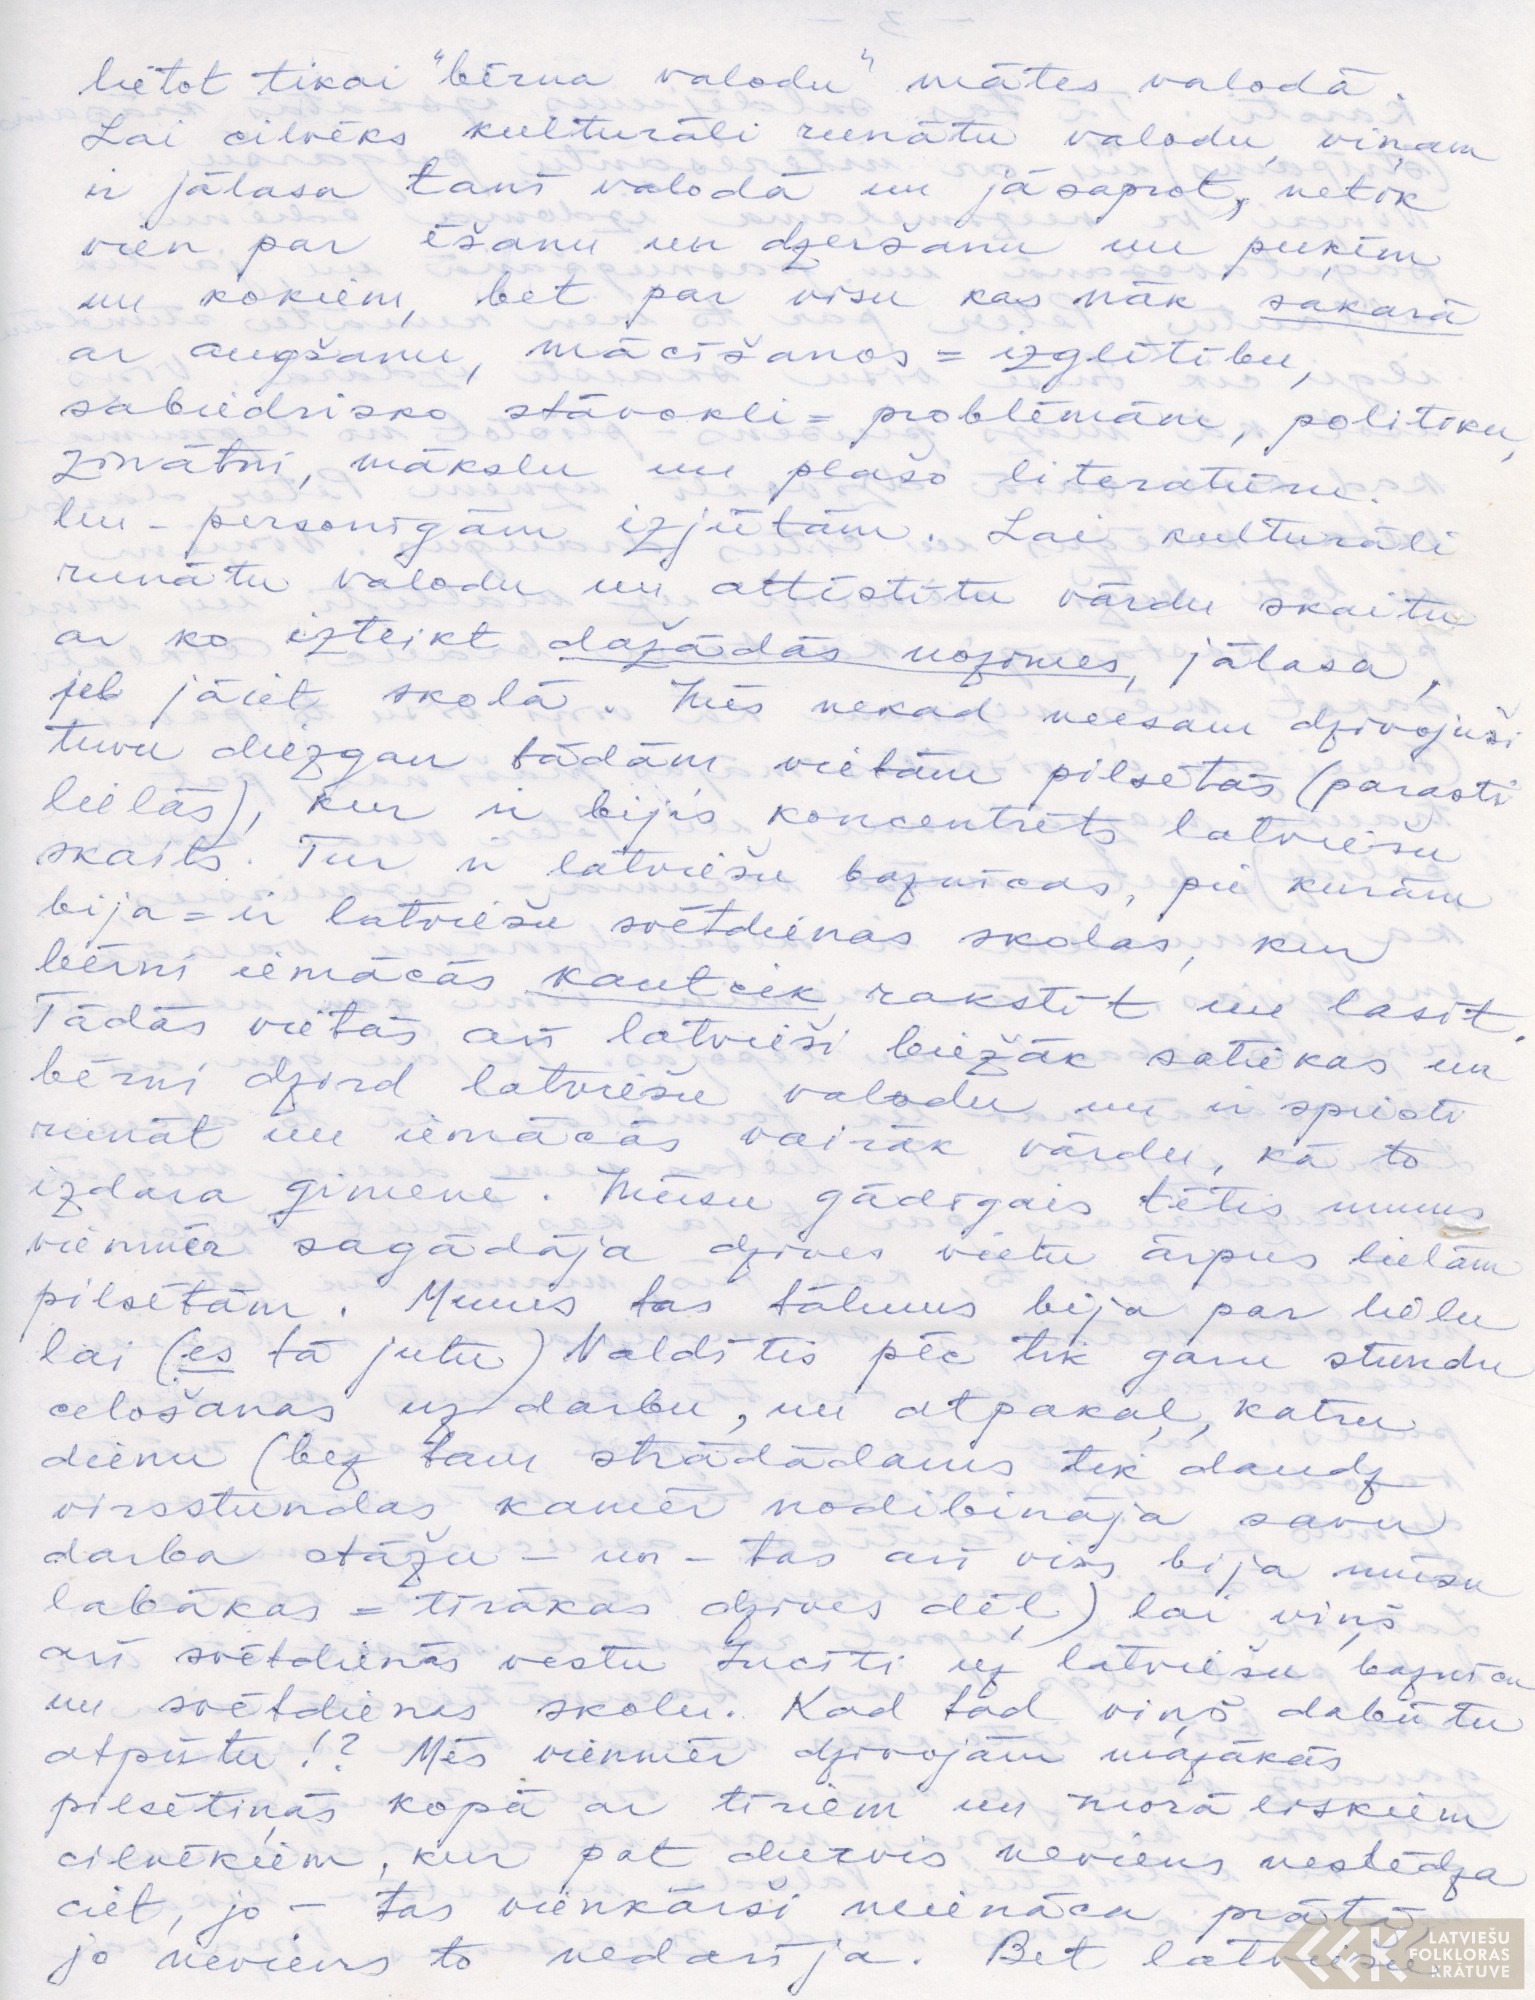 lietot tikai "bērna valodu" mātes valodā.
Lai cilvēks kulturāli runātu valodu, viņam
ir jālasa tanī valodā un jāsaprot, netik
vien par ēšanu un dzeršanu un puķēm
un kokiem, bet par visu kas nāk sakarā
ar augšanu, mācīšanos = izglītību,
sabiedrisko stāvokli = problēmām, politiku,
zinātni, mākslu un plašo literatūru.
un - personīgām izjūtām. Lai kulturāli
runātu valodu un attīstītu vārdu skaitu
ar ko izteikt dažādās nozīmes, jālasa,
jeb jāiet skolā. Mēs nekad neesam dzīvojuši
tuvu diezgan tādām vietām pilsētās (parasti
lielās), kur ir bijis koncentrēts latviešu
skaits. Tur ir latviešu baznīcas, pie kurām
bija = ir latviešu svētdienas skolas, kur
bērni iemācās kautcik rakstīt un lasīt.
Tādās vietās arī latvieši biežāk satiekas un
bērni dzird latviešu valodu un ir spiesti
runāt un iemācās vairāk vārdu, kā to
izdara ģimenē. Mūsu gādīgais tētis mums
vienmēr sagādāja dzīves vietu ārpus lielām
pilsētām. Mums tas tālums bija par lielu
lai (es tā jutu) Valdītis pēc tik garu stundu
celošanas uz darbu, un atpakaļ, katru
dienu (bez tam strādādams tik daudz
virsstundas kamēr nodibināja savu
darba stāžu - un - tas arī viss bija mūsu
labākas = tīrākas dzīves dēļ) lai viņš
arī svētdienās vestu Lucīti uz latviešu baznīcu
un svētdienas skolu. Kad tad viņš dabūtu
atpūtu!? Mēs vienmēr dzīvojām mazākās
pilsētiņās kopā ar tīriem un morāliskiem
cilvēkiem, kur pat durvis neviens neslēdza
ciet, jo - tas vienkārši neienāca prātā
jo neviens to nedarīja. Bet latviešu
LATVIEŠU
FOLKLORAS
KRĀTUVE